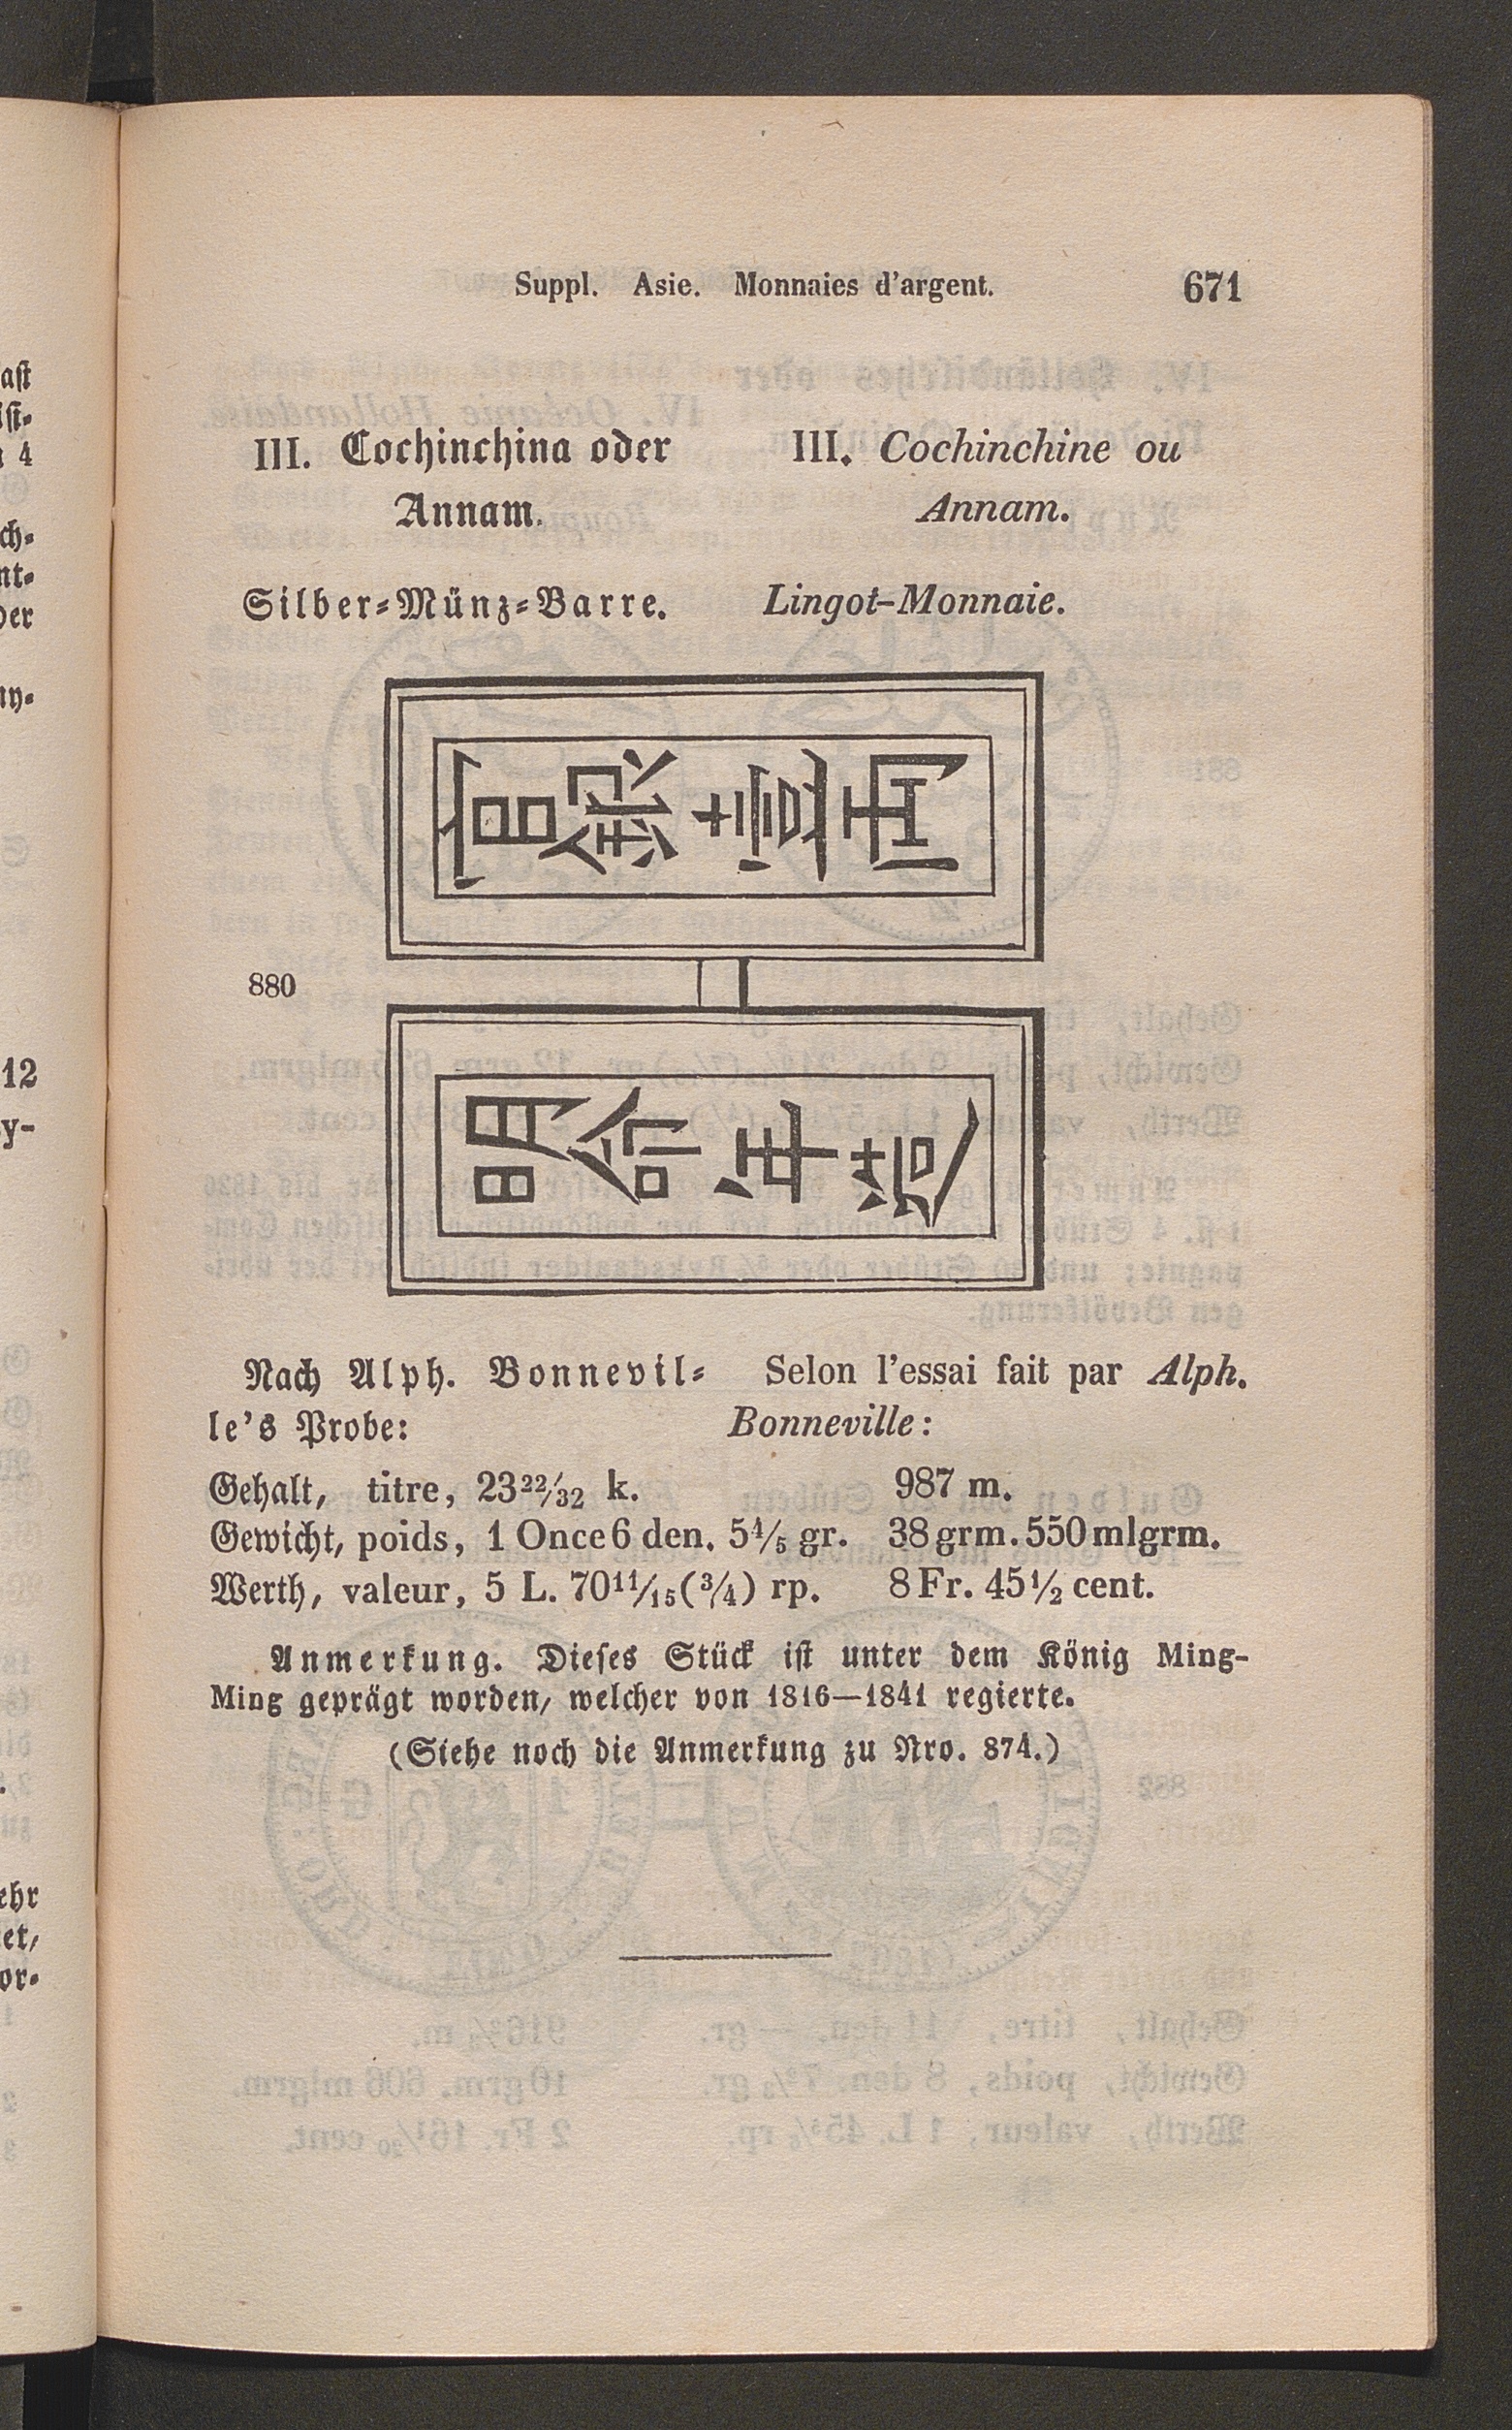 Suppl. Asie. Monnaies d'argent. 671
III. Cochinchina oder
Annam.
III. Cochinchine ou
Annam.
Silber-Münz-Barre. Lingot-Monnaie.
官銀壹両
880
明命年造
Nach Alph. Bonnevil-
le's Probe:
Selon l'essai fait par Alph.
Bonneville:
Gehalt, titre, 23 22/32 k. 987 m.
Gewicht, poids, 1 Once 6 den. 5 4/5 gr. 38 grm. 550 mlgrm.
Werth, valeur, 5 L. 70 11/15 (3/4) rp. 8 Fr. 45 1/2 cent.
Anmerkung. Dieses Stück ist unter dem König Ming-
Ming geprägt worden, welcher von 1816—1841 regierte.
(Siehe noch die Anmerkung zu Nro. 874.)